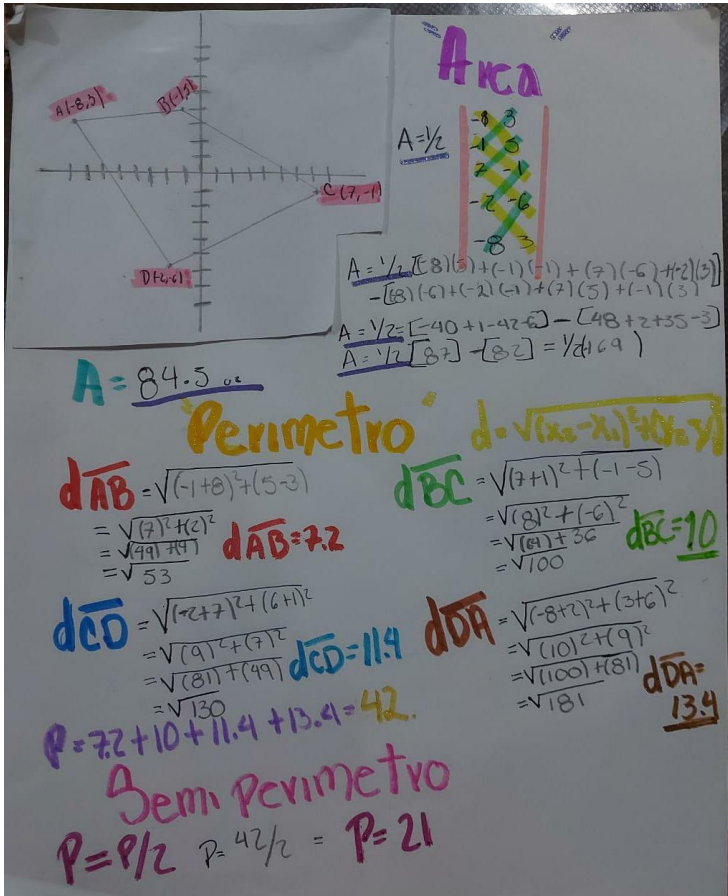 "Area"
A(-8,3)
B(-1,5)
C(7,-1)
A=1/2
-8 3
-1 5
7 -1
-2 -6
-8 3
A = 1/2 [(-8)(5)+(-1)(-1)+(7)(-6)+(-2)(3)]
-[(-8)(-6)+(-2)(-1)+(7)(5)+(-1)(3)
A = 1/2 = [-40+1-42-6] - [48+2+35-3]
A = 1/2 [87] - [82] = 1/2(-169)
A = 84.5
"Perimetro"
d=√(x₂-x₁)²+(y₂-y₁)
dAB = √(-1+8)²+(5-3)
= √(7)²+(2)²
= √(49)+(4)
= √53
dAB=7.2
dBC = √(7+1)²+(-1-5)
= √(8)²+(-6)²
= √(64)+36
= √100
dBC=10
dCD = √(-2+7)²+(6+1)²
= √(9)²+(7)²
= √(81)+(49)
= √130
dCD=11.4
dDA = √(-8+2)²+(3+6)²
= √(10)²+(9)²
= √(100)+(81)
= √181
dDA=
13.4
P=7.2+10+11.4+13.4=42.
Semi perimetro
P=P/2 P=42/2 = P=21